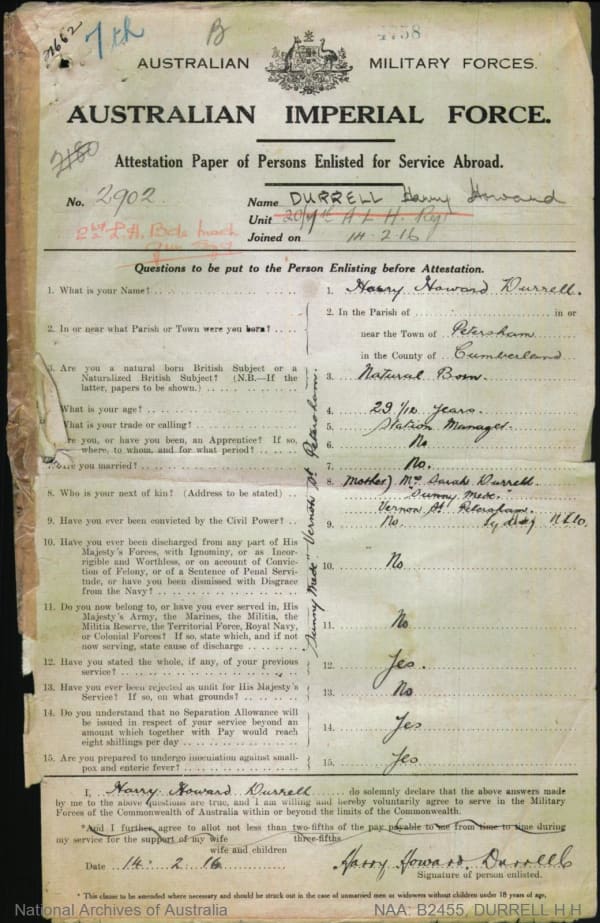 21662
7th
B
4758
AUSTRALIAN MILITARY FORCES.
AUSTRALIAN IMPERIAL FORCE.
Attestation Paper of Persons Enlisted for Service Abroad.
No. 2902 Name DURRELL Harry Howard
Unit 20/7th A L H. Reg
2nd L.H. Bde Mach
Gun Sqn
Joined on 14-2-16
Questions to be put to the Person Enlisting before Attestation.
1. What is your Name? 1. Harry Howard Durrell.
2. In or near what Parish or Town were you born? 2. In the Parish of in or
near the Town of Petersham
in the County of Cumberland
3. Are you a natural born British Subject or a
Naturalized British Subject? (N.B.—If the
latter, papers to be shown.) 3. Natural Born.
What is your age? 4. 29 /12 years.
What is your trade or calling? 5. Station Manager
Are you, or have you been, an Apprentice? If so,
where, to whom, and for what period? 6. No.
Are you married? 7. No.
8. Who is your next of kin? (Address to be stated) 8. Mother) Mrs Sarah Durrell.
"Sunny Mede"
Vernon St Petersham.
Sydney N.S.W.
"Sunny Mede" Vernon St Petersham.
9. Have you ever been convicted by the Civil Power? 9. No
10. Have you ever been discharged from any part of His
Majesty's Forces, with Ignominy, or as Incor-
rigible and Worthless, or on account of Convic-
tion of Felony, or of a Sentence of Penal Servi-
tude, or have you been Dismissed with Disgrace
from the Navy? 10. No
11. Do you now belong to, or have you ever served in, His
Majesty's Army, the Marines, the Militia, the
Militia Reserve, the Territorial Force, Royal Navy,
or Colonial Forces? If so, state which, and if not
now serving, state cause of discharge 11. No
12. Have you stated the whole, if any, of your previous
service? 12. Yes.
13. Have you ever been rejected as unfit for His Majesty's
Service? If so, on what grounds? 13. No
14. Do you understand that no Separation Allowance will
be issued in respect of your service beyond an
amount which together with Pay would reach
eight shillings per day 14. Yes
15. Are you prepared to undergo inoculation against small-
pox and enteric fever? 15. Yes
I, Harry Howard Durrell do solemnly declare that the above answers made
by me to the above questions are true, and I am willing and hereby voluntarily agree to serve in the Military
Forces of the Commonwealth of Australia within or beyond the limits of the Commonwealth.
*And I further agree to allot not less than two-fifths of the pay payable to me from time to time during
three-fifths
my service for the support of my wife
wife and children
Date 14. 2. 16 Harry Howard Durrell
Signature of person enlisted.
* This clause to be amended where necessary and should be struck out in case of unmarried men or widowers without children under 18 years of age,
National Archives of Australia NAA: B2455, DURRELL H H